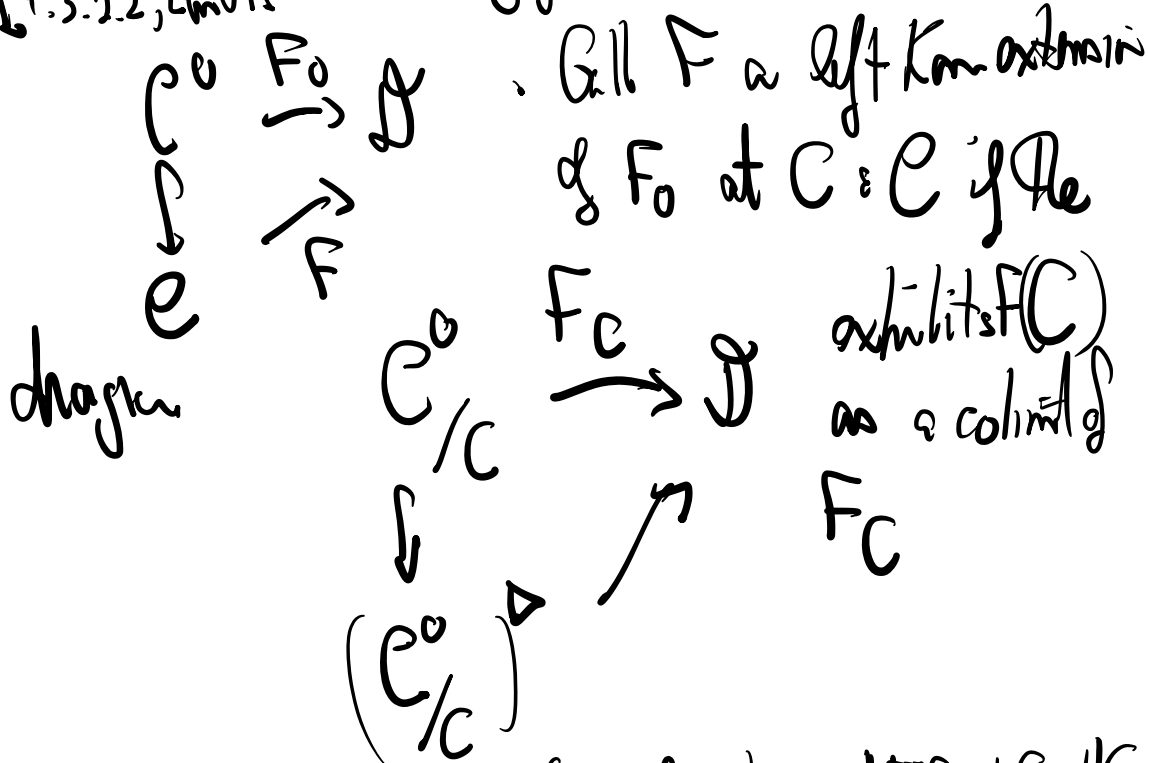 C⁰ F₀ → D . Call F a left Kan extension
of F₀ at C : C if the
↗ F
C
diagram C⁰/C F_C → D exhibits F(C)
as a colimit of
F_C
(C⁰/C)▷